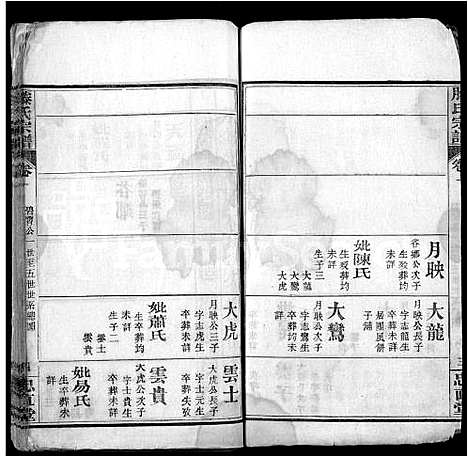 滕氏宗譜
卷一
忠直堂
月映
谷鄉公次子
生歿葬均
未詳
妣陳氏
生歿葬均
未詳
生子三
大龍
月映公長子
宇志龍生
卒葬未詳
居團風餅
子鋪
大鸞
月映公次子
宇志鸞生
卒葬未詳
大虎
大虎
月映公三子
宇志虎生
卒葬未詳
妣蕭氏
生卒葬均
未詳
生子二
雲貴
雲士
大虎公長子
字士元生
卒葬失攷
雲貴
大虎公次子
字士貴生
卒葬未詳
妣易氏
生卒葬均
未詳
滕氏宗譜
卷一
公一世至五世世系總圖
四
忠直堂